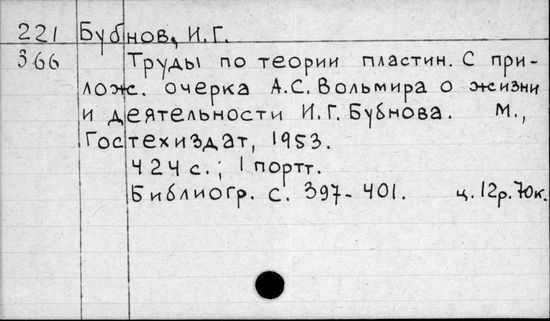 221 Бубнов, И.Г.
366 Труды по теории пластин. С при-
лож. очерка А.С. Вольмира о жизни
и деятельности И.Г. Бубнова. М.,
Гостехиздат, 1953.
424 с.; 1 портт.
Библиогр. с. 397-401. ц. 12р. 70к.